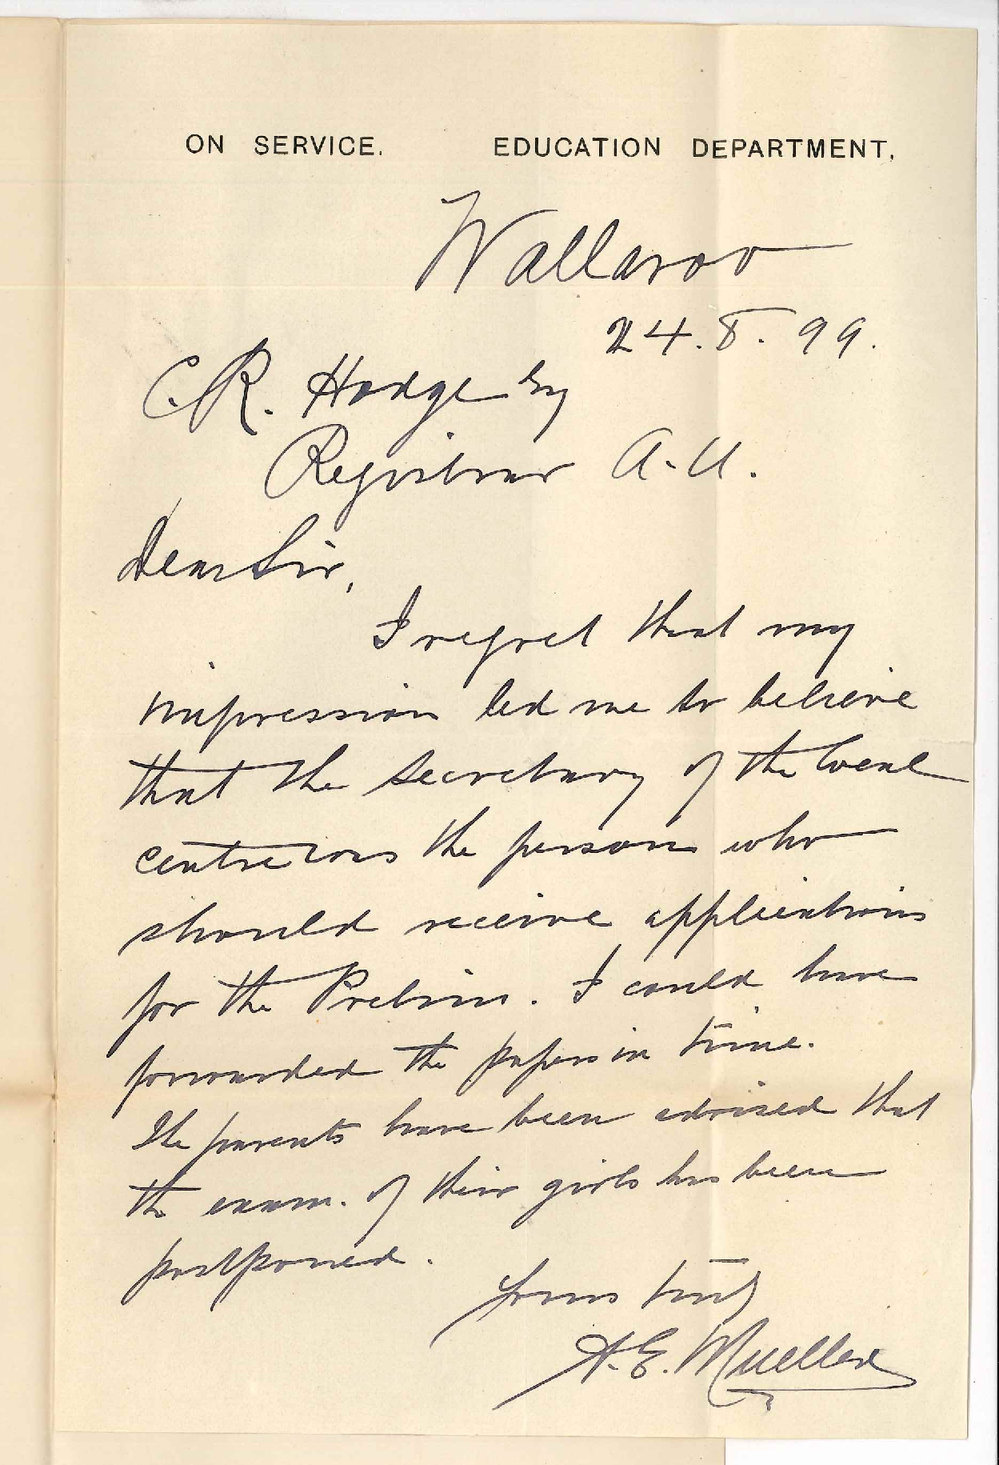 ON SERVICE. EDUCATION DEPARTMENT.
Wallaroo
24.8.99.
C.R. Hodge Esq
Registrar A.U.
Dear Sir,
I regret that my
impression led me to believe
that the secretary of the local
centre was the person who
should receive applications
for the Prelim. I could have
forwarded the papers in time.
The parents have been advised that
the exam. of their girls has been
postponed.
Yours truly
A.E. Mueller